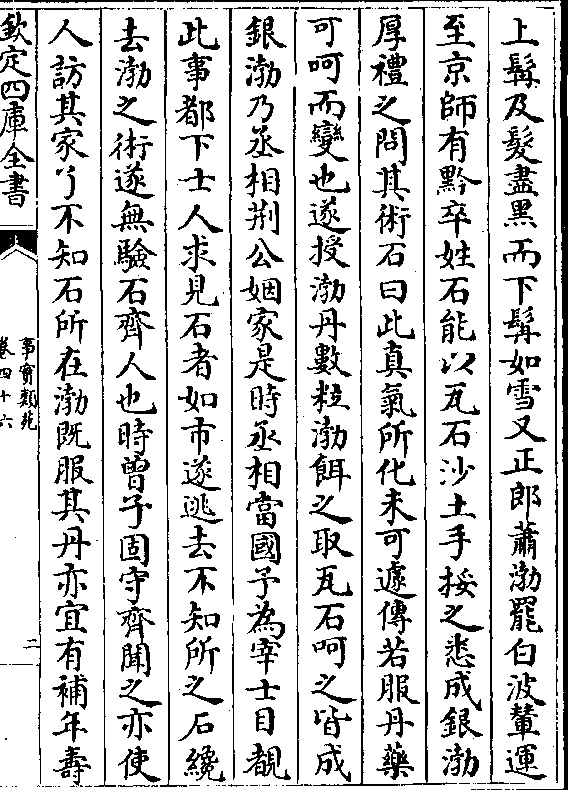 上髯及髮盡黑而下髯如雪又正郎蕭渤罷白波輦運
至京師有黥卒姓石能以瓦石沙土手挼之悉成銀渤
厚禮之問其術石曰此真氣所化未可遽傳若服丹藥
可呵而變也遂授渤丹數粒渤餌之取瓦石呵之皆成
銀渤乃丞相荆公姻家是時丞相當國予為宰士目覩
此事都下士人求見石者如市遂逃去不知所之石纔
去渤之術遂無驗石齊人也時曾子固守齊聞之亦使
人訪其家了不知石所在渤既服其丹亦宜有補年壽
欽定四庫全書
事實類苑
卷四十六
二